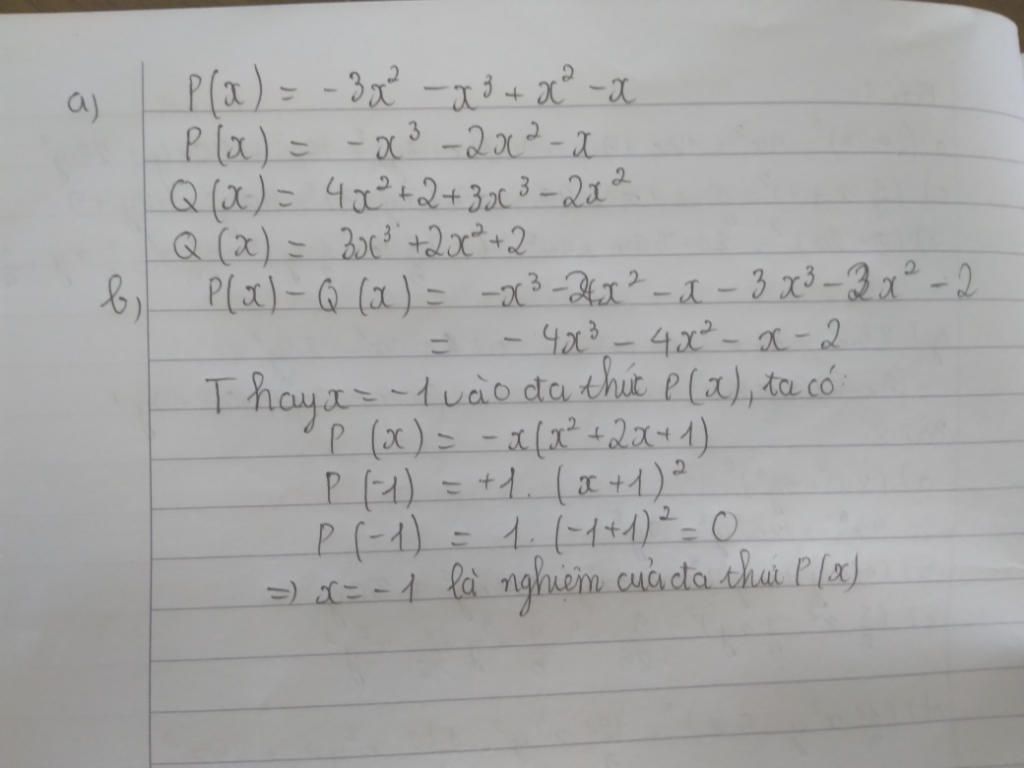 a) P(x) = -3x² - x³ + x² - x
P(x) = -x³ - 2x² - x
Q(x) = 4x² + 2 + 3x³ - 2x²
Q(x) = 3x³ + 2x² + 2
b, P(x) - Q(x) = -x³ - 2x² - x - 3x³ - 2x² - 2
= - 4x³ - 4x² - x - 2
Thay x = -1 vào đa thức P(x), ta có:
P(x) = -x(x² + 2x + 1)
P(-1) = +1. (x+1)²
P(-1) = 1. (-1+1)² = 0
=) x = -1 là nghiệm của đa thức P(x)